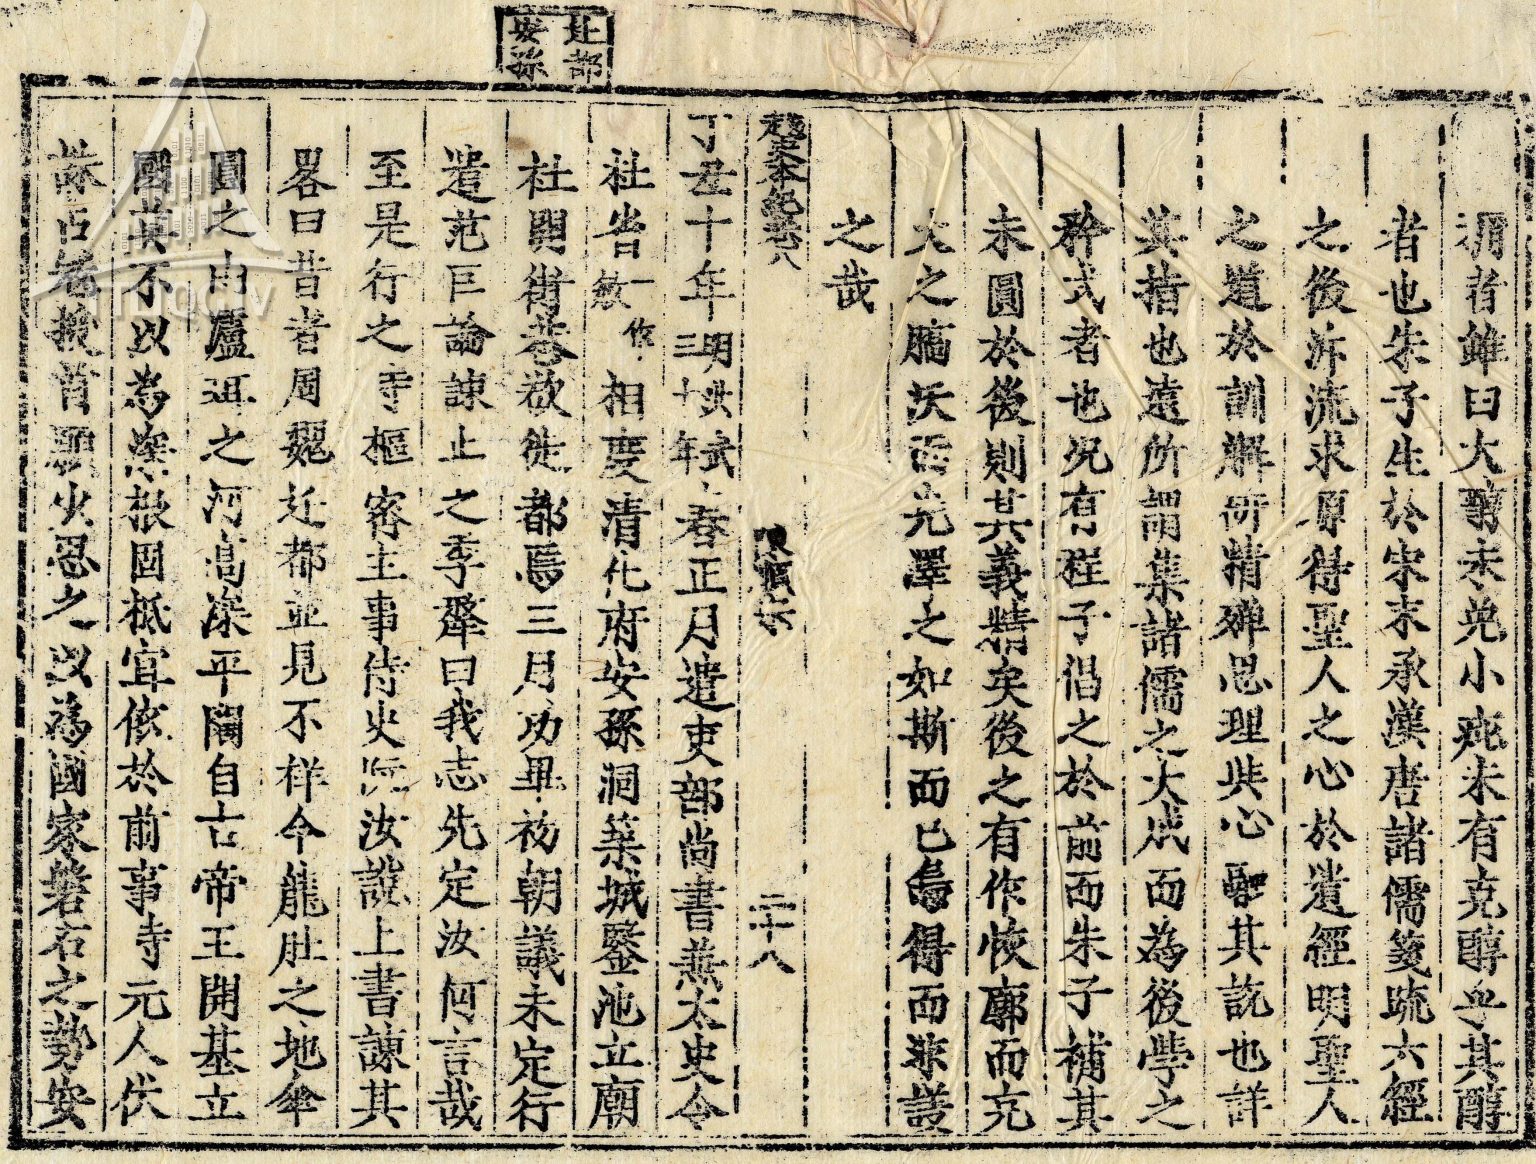 稱者雖曰大醇未免小疵未有克醇乎其醇
者也朱子生於宋末承漢唐諸儒箋疏六經
之後泝流求原得聖人之心於遺經明聖人
之道於訓解研精殫思理與心融其説也詳
其指也遠所謂集諸儒之大成而為後學之
矜式者也况有程子倡之於前而朱子補其
未圓於後則其義精矣後之有作恢廓而充
大之膓沃而光澤之如斯而已烏得而非議
之哉
越史本紀卷八
陳順宗
二十八
丁丑十年明洪武三十年春正月遣吏部尚書兼太史令
杜省一作敏相度清化府安孫洞築城鑿池立廟
社開街巷欲徙都焉三月功畢初朝議未定行
遣范巨論諫止之季犛曰我志先定汝何言哉
至是行之寺樞密主事侍史阮汝說上書諫其
畧曰昔者周魏迁都並見不样今龍肚之地傘
圓之山瀘珥之河高深平闊自古帝王開基立
國莫不以為深根固柢宜依於前事寺元人伏
誅占寇授首願少思之以為國家磐石之勢安
迁都安孫
THUQC.lv